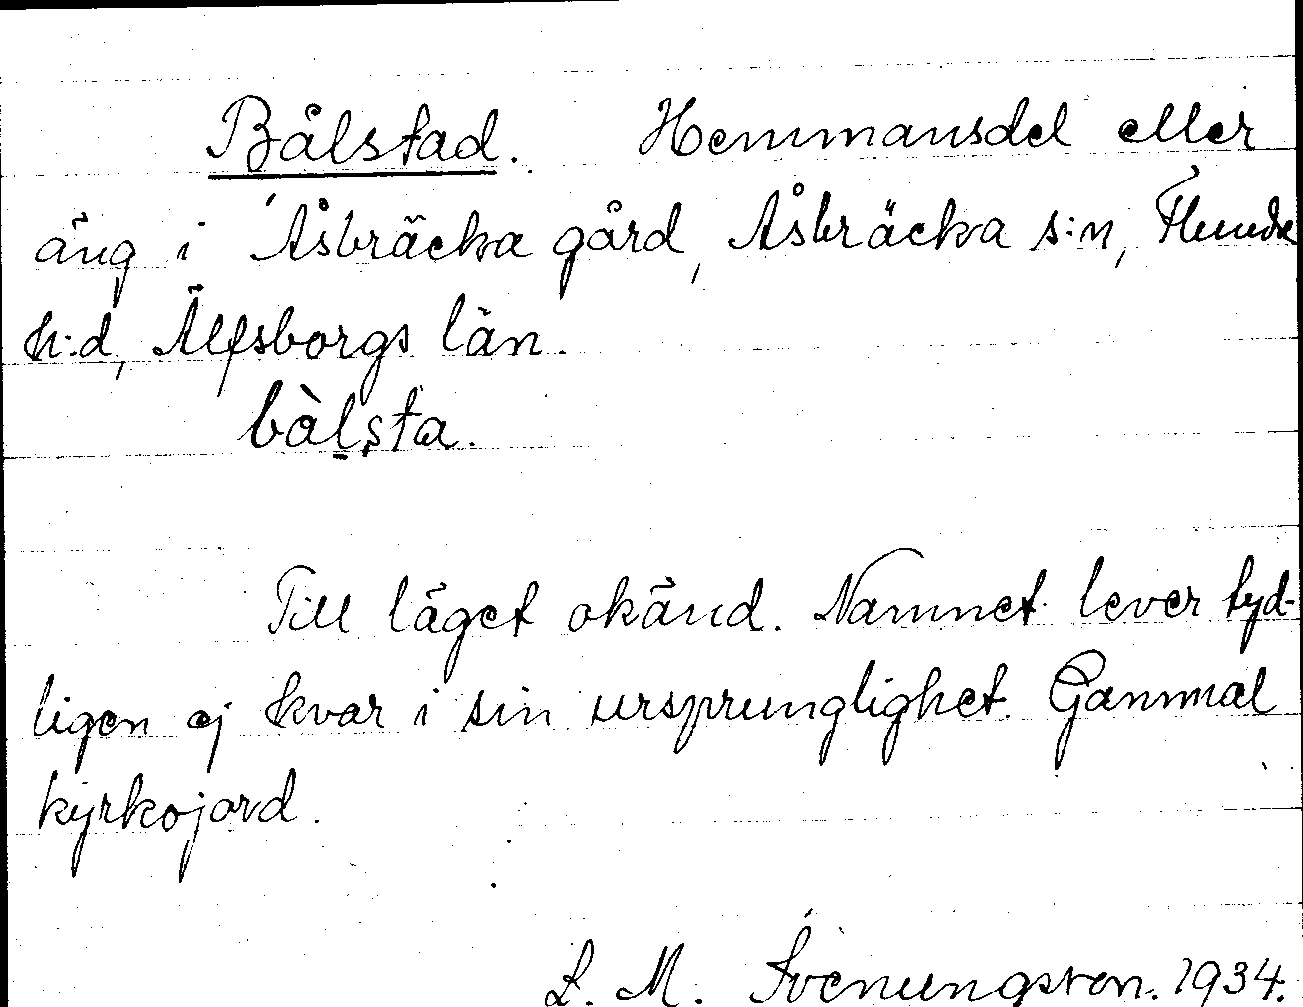 Bålstad. Hemmansdel eller
äng i Åsbräcka gård, Åsbräcka s:n, Flundre
h:d, Älfsborgs län.
bàl̠şta.
Till läget okänd. Namnet lever tyd-
ligen ej kvar i sin ursprunglighet. Gammal
kyrkojord.
L. M. Svenungsson. 1934.